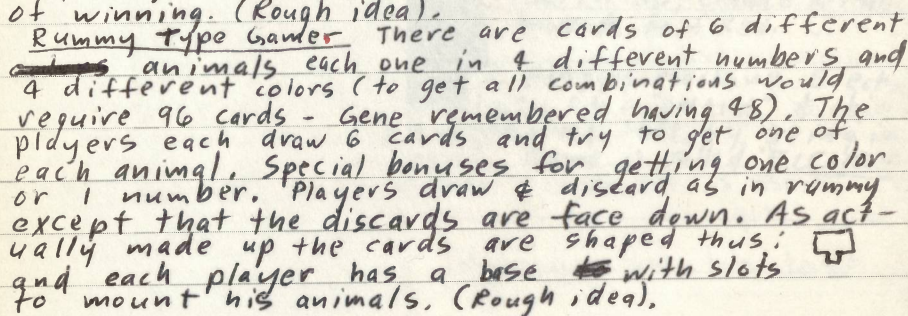 of winning. (Rough idea).
Rummy Type Game. There are cards of 6 different
animals each one in 4 different numbers and
4 different colors (to get all combinations would
require 96 cards - Gene remembered having 48). The
players each draw 6 cards and try to get one of
each animal. Special bonuses for getting one color
or 1 number. Players draw & discard as in rummy
except that the discards are face down. As act-
ually made up the cards are shaped thus:
and each player has a base with slots
to mount his animals. (Rough idea).